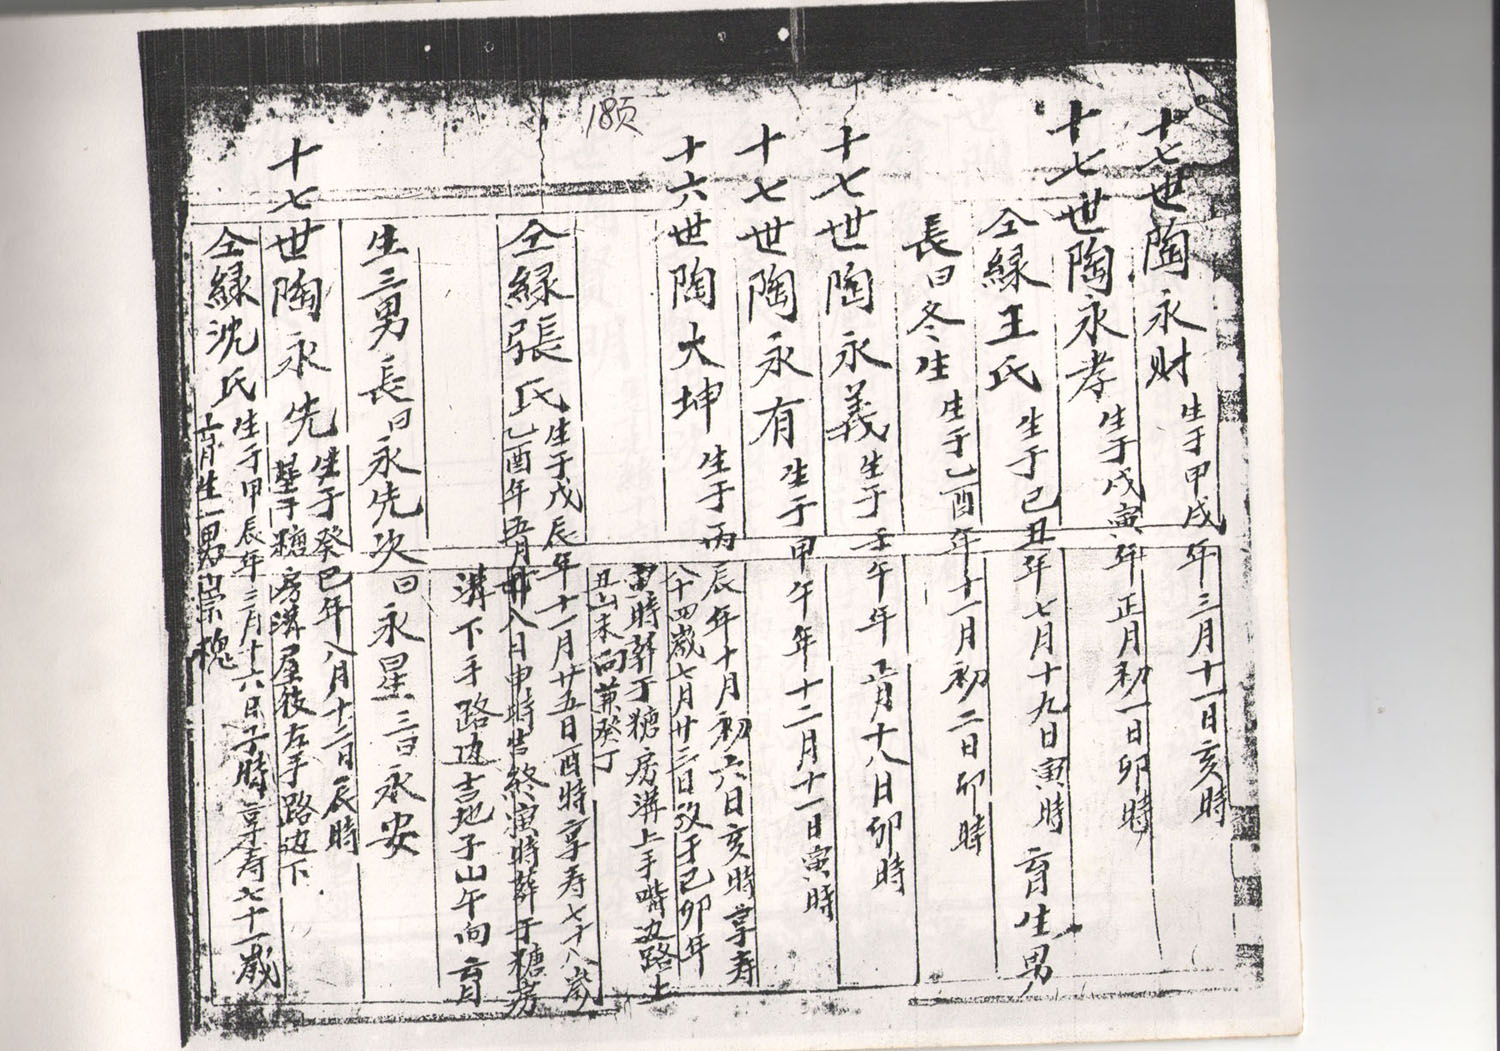 18页
十七世陶永财 生于甲戌年三月十一日亥時
十七世陶永孝 生于戊寅年正月初一日卯時
仝緣王氏 生于己丑年七月十九日寅時 育生男
長曰冬生 生于乙酉年十一月初二日卯時
十七世陶永義 生于壬午年正月十八日卯時
十七世陶永有 生于甲午年十二月十一日寅時
十六世陶大坤 生于丙辰年十月初六日亥時享寿
八十四歲七月廿三日故于己卯年
時葬于糖房溝上手嘴边路上
丑山未向兼癸丁
仝緣張氏 生于戊辰年十一月廿五日酉時享寿七十八歲
乙酉年五月廿八日申時告終寅時葬于糖房
溝下手路边吉地子山午向 育
生三男 長曰永先 次曰永星 三曰永安
十七世陶永先 生于癸巳年八月十三日辰時
墓于糖房溝屋後左手路边下
仝緣沈氏 生于甲辰年三月十六日子時享寿七十一歲
育生一男 崇槐